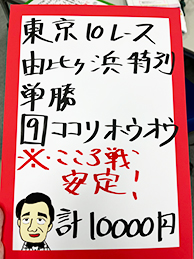 東京10レース
由比ヶ浜特別
単勝
9 ココリホウオウ
※こころ戦
安定!
計10000円